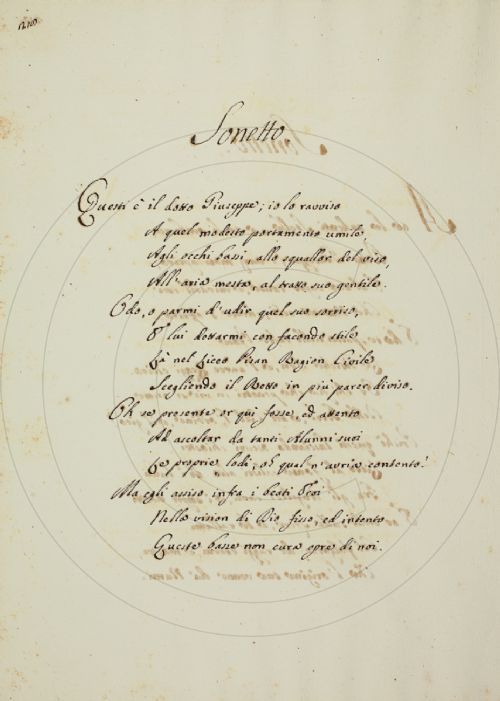 Sonetto
Questi è il dotto Giuseppe; io lo ravviso
A quel modesto portamento umile,
Agli occhi bassi, allo squallor del viso
All'aria mesta, al tratto suo gentile.
Odo, o parmi d'udir quel suo sorriso,
E lui dettarmi con facondo stile
Là nel Liceo Pisan Ragion Civile
Scegliendo il Retto in più parer diviso.
Oh se presente or qui fosse, ed attento
Ad ascoltar da tanti Alunni suoi
Le proprie lodi, oh qual n'avria contento!
Ma egli assiso infra i beati Eroi
Nella vision di Dio fisso, ed intento
Queste basse non cura opre di noi.